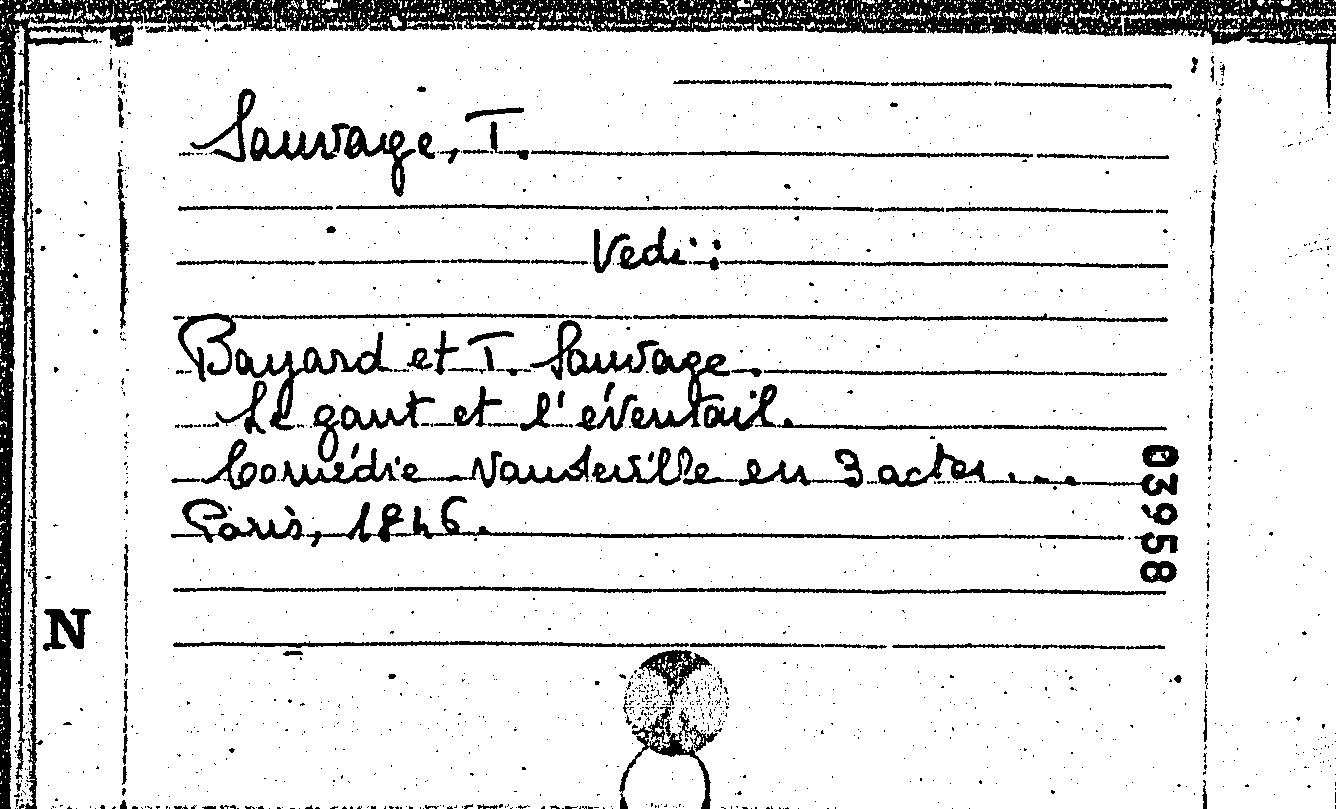 Sauvage, T.
Vedi:
Bayard et T. Sauvage.
Le gant et l'éventail.
Comédie Vaudeville en 3 actes...
Paris, 1846.
03958
N